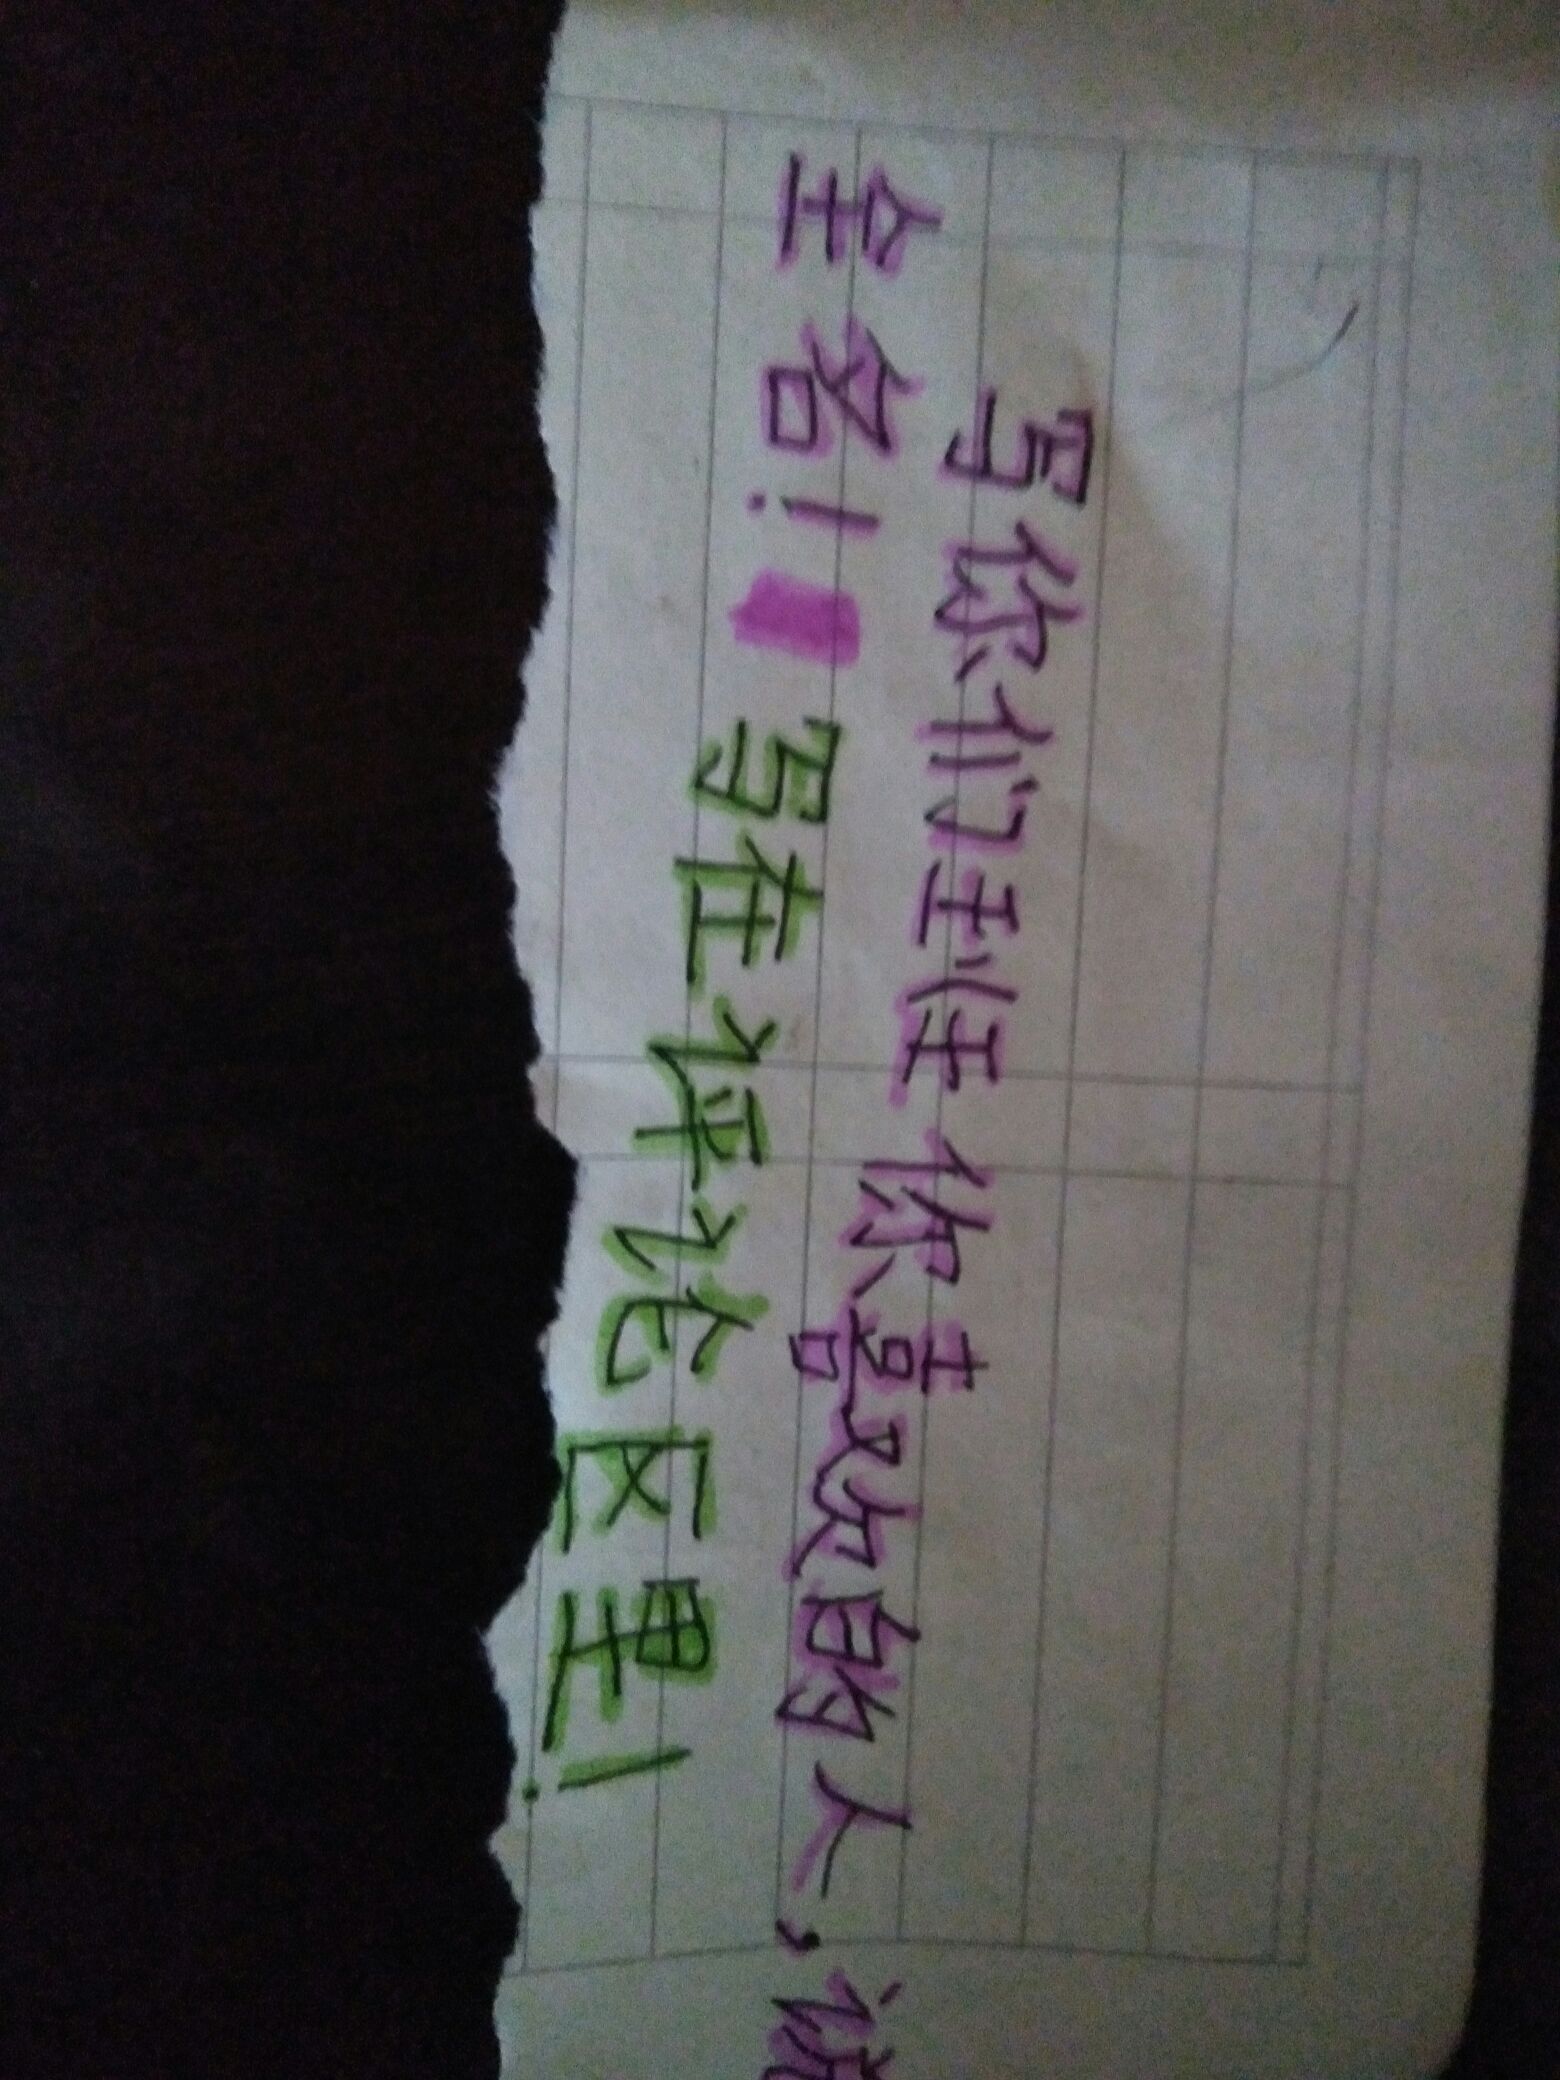 写你们班你喜欢的人，说
全名！写在评论区里！